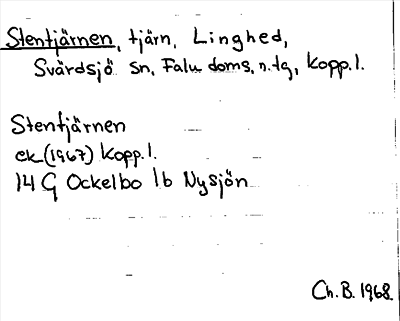 Stentjärnen, tjärn, Linghed,
Svärdsjö sn, Falu doms. n. tg, Kopp. l.
Stentjärnen
ek (1967) Kopp. l.
14 G Ockelbo 1b Nysjön
Ch. B. 1968.